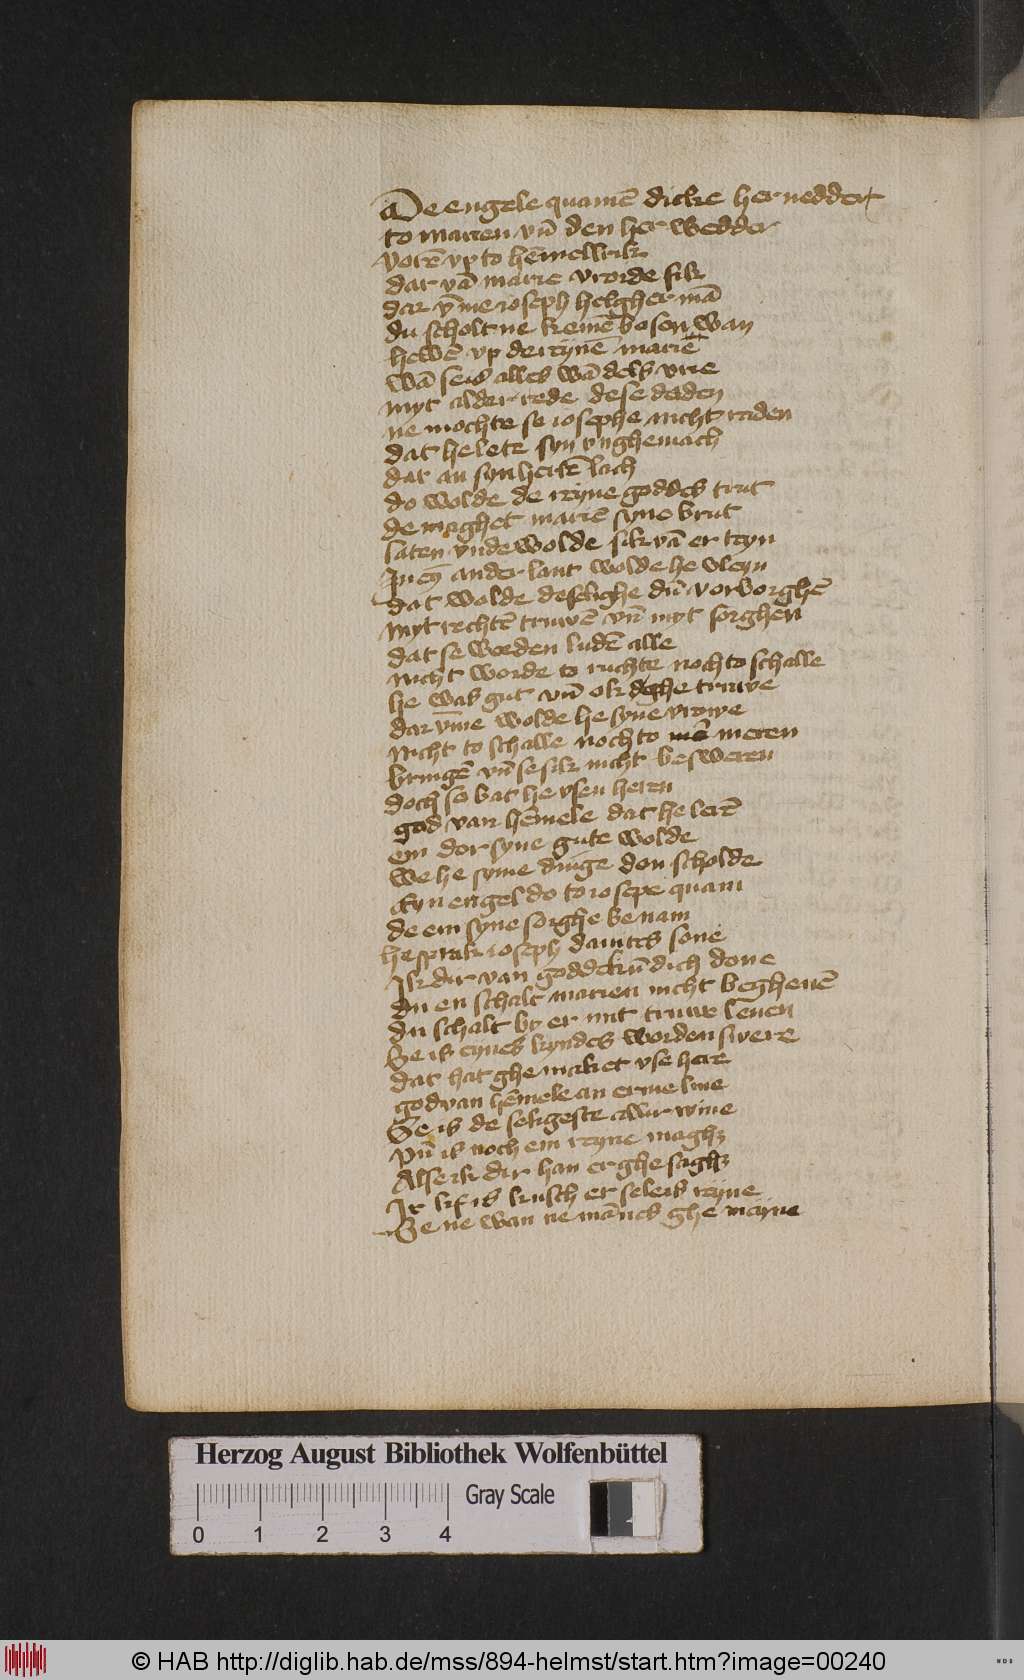 De engele quamē dicke her nedder
to marien vn̄ den her wedder
vorē vp to hēmelrik
dar vā marie vrorde sik
dar v̄me ioseph helgher mā
du scholt ne keinē bosen wan
hewē vp de reynē mariē
wā se is alles wādels vrie
myt alder rede dese deden
ne mochte se iosephe nicht raden
dat he lete syn vnghemach
dat an syn hertē lach
do wolde de reyne goddes trut
de maghet mariē syne brut
laten vnde wolde sik vā er teyn
In eȳ ander lant wolde he vleyn
dat wolde de selighe dūe vorborghē
myt rechtē truwē vn̄ myt sorghen
dat se worden ludē alle
nicht worde to ruchte noch to schalle
he was gut vn̄ ok deghe truwe
dar v̄me wolde he syne vrowe
nicht to schalle noch to meren
bringē vn̄ se sik nicht besweren
doch so bat he vsen heren
god van hēmele dat he lerē
em dor syne gute wolde
we he syme dinge don scholde
Eyn engel do to iosepe quam
de em syne sorghe benam
he sprak ioseph dauites sone
Ik dir van godde kūdich done
du en schalt marien nicht begheuē
du schalt by er mit truwe leuen
Se is eynes kyndes worden swere
dat hat ghemaket vse here
god van hēmele an erme liue
Se is de seligeste aller wiue
vn̄ is noch ein reyne maghꝫ
Alse ik dir han er ghesaghꝫ
Ir lif is kusch er sele is reyne
Se ne wan ne mānes ghemeyne
Herzog August Bibliothek Wolfenbüttel
Gray Scale
0 1 2 3 4
© HAB http://diglib.hab.de/mss/894-helmst/start.htm?image=00240